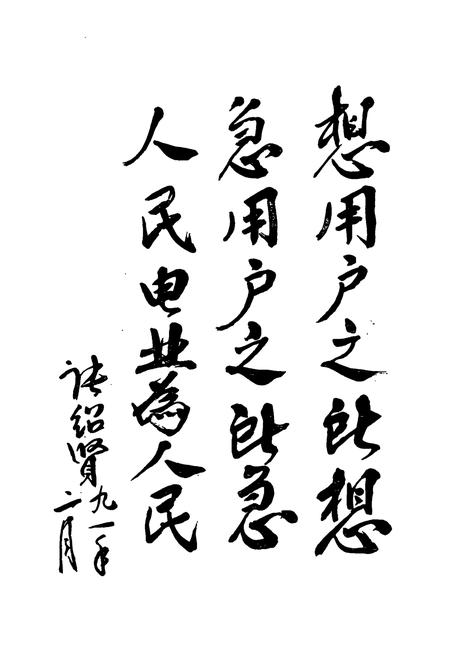 想用户之所想
急用户之所急
人民电业为人民
张绍贤
九一年
二月